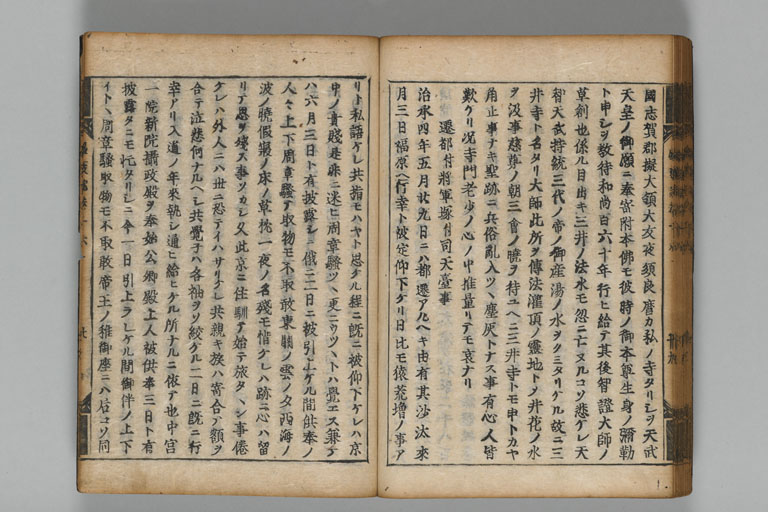 國志賀郡擬大領大友夜須良麿カ私ノ寺タリシヲ天武
天皇ノ御願ニ奉寄附本佛モ彼時ノ御本尊生身ノ彌勒
ト申シヲ教待和尚百六十年行ヒ給テ其後智證大師ノ
草創也係ル目出キ三井ノ法水モ忽ニ亡ヌルコソ悲ケレ天
智天武持統三代ノ帝ノ御産湯ノ水ヲクミタリケル故ニ三
井寺ト名タリ大師此所ヲ傳法灌頂ノ靈地トメ井花ノ水
ヲ汲事慈尊ノ朝三會ノ曉ヲ待ユヘニ三井寺トモ申トカヤ
角止事ナキ聖跡ニ兵俗亂入ツヽ塵灰トナス事有心人皆
歎ケリ况寺門老少ノ心ノ中推量リテモ哀ナリ
遷都付將軍塚付司天臺事
治承四年五月廿九日ニハ都遷アルヘキ由有其沙汰來
月三日福原ヘ行幸ト被定仰下ケリ日比モ猿荒増ノ事ア
リト私語ケレ共指モハヤト思ケル程ニ既ニ被仰下ケレハ京
中ノ貴賤是非ニ迷ヒ周章騷ツヽ更ニウツヽトハ覺エス兼テ
ハ六月三日ト有披露シニ俄ニ二日ニ被引上ケル間供奉ノ
人々上下周章騷テ取物モ不取敢東關ノ雲ノ夕西海ノ
波ノ曉假寢ノ床ノ草枕一夜ノ名殘モ惜ケレハ跡ニ心ハ留
リテ思ヲ壞ス事ソカシ况此京ニ住馴テ始テ旅タヽン事倦
ケレハ外人ニハ世ニ恐テイハサリケレ共親キ族ハ寄合テ額ヲ
合テ泣悲何ナルヘシ共覺子ハ各袖ヲソ絞ケル二日ニ既ニ行
幸アリ入道ノ年來執シ通ヒ給ヒケル所ナルニ依テ也中宮
一院新院攝政殿ヲ奉始公卿殿上人被供奉三日ト有
披露タニモ忙タリシニ今一日引上ラレケル間御伴ノ上下
イトヽ周章騷取物モ不取敢帝王ノ稚御座ニハ后コソ同